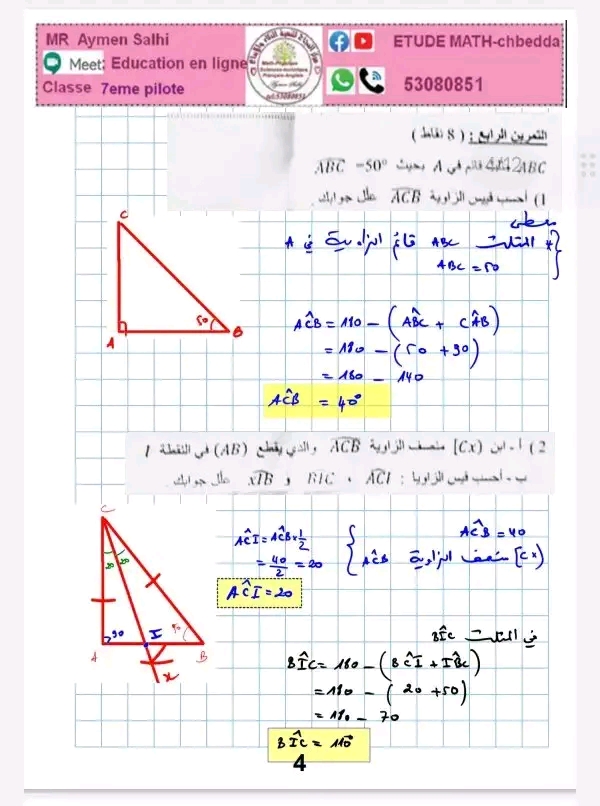 MR Aymen Salhi
Meet: Education en ligne
Classe 7eme pilote
ETUDE MATH-chbedda
53080851
التمرين الرابع : ( 8 نقاط )
ABC مثلث قائم في A بحيث ABC =50°
1) أحسب قيس الزاوية ACB علّل جوابك .
معطى
* المثلث ABC قائم الزاوية في A
ABC = 50
C
A
B
50
AĈB = 180 – (AB̂C + CÂB)
= 180 – (50 + 90)
= 180 – 140
AĈB = 40°
2) أ - ابن [Cx) منصف الزاوية ACB والذي يقطع (AB) في النقطة I
ب - أحسب قيس الزوايا : ACI ، BIC و xIB علل جوابك .
AĈB = 40
[Cx) منصف الزاوية AĈB
AĈI = AĈB × 1/2
= 40/2 = 20
AĈI = 20
C
20 20
90
I
50
A
B
x
في المثلث BÎC
BÎC = 180 – (BĈI + IB̂C)
= 180 – (20 + 50)
= 180 – 70
BÎC = 110°
4